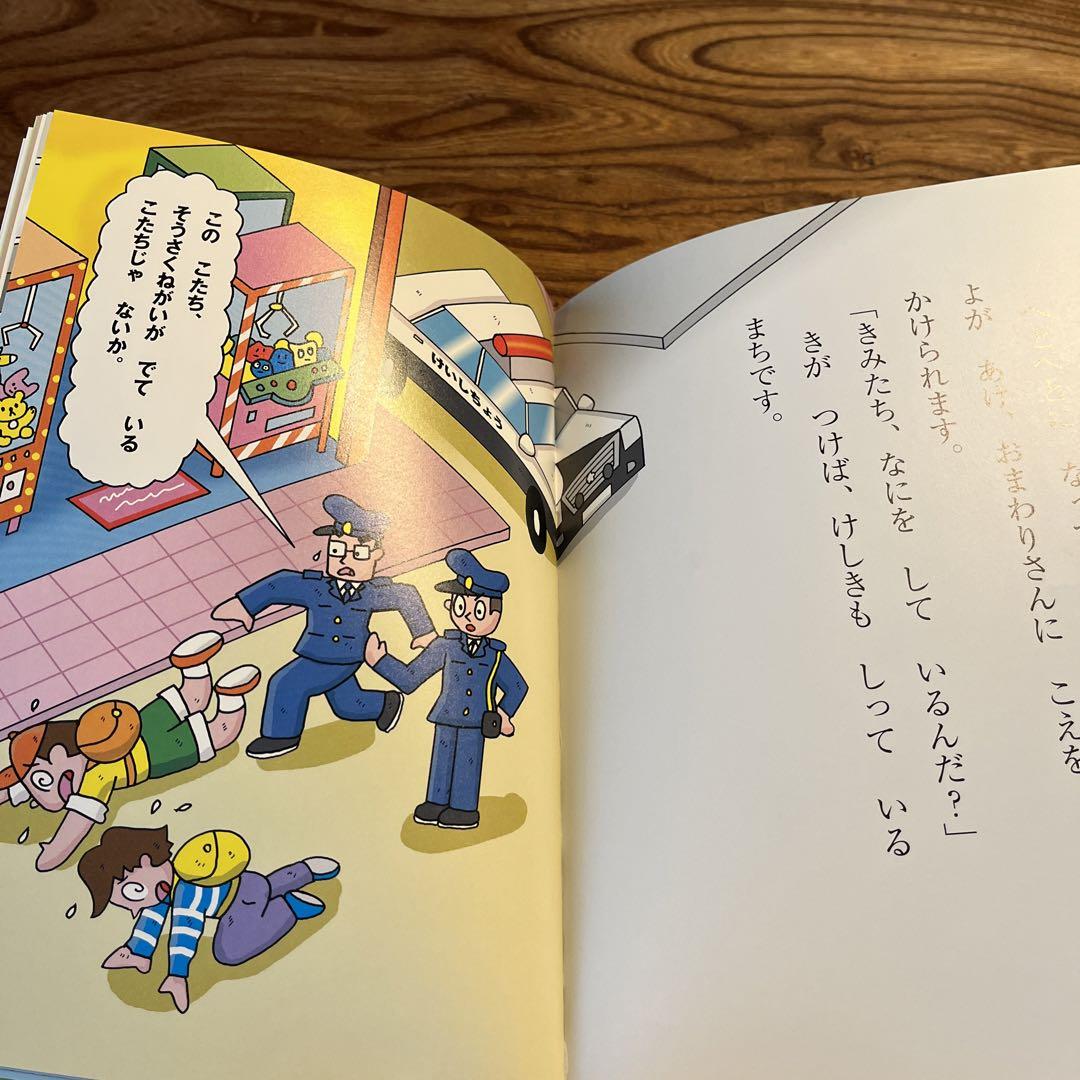 よが あけ、おまわりさんに こえを
かけられます。
「きみたち、なにを して いるんだ？」
きが つけば、けしきも しって いる
まちです。
この こたち、
そうさくねがいが でて いる
こたちじゃ ないか。
けいしちょう